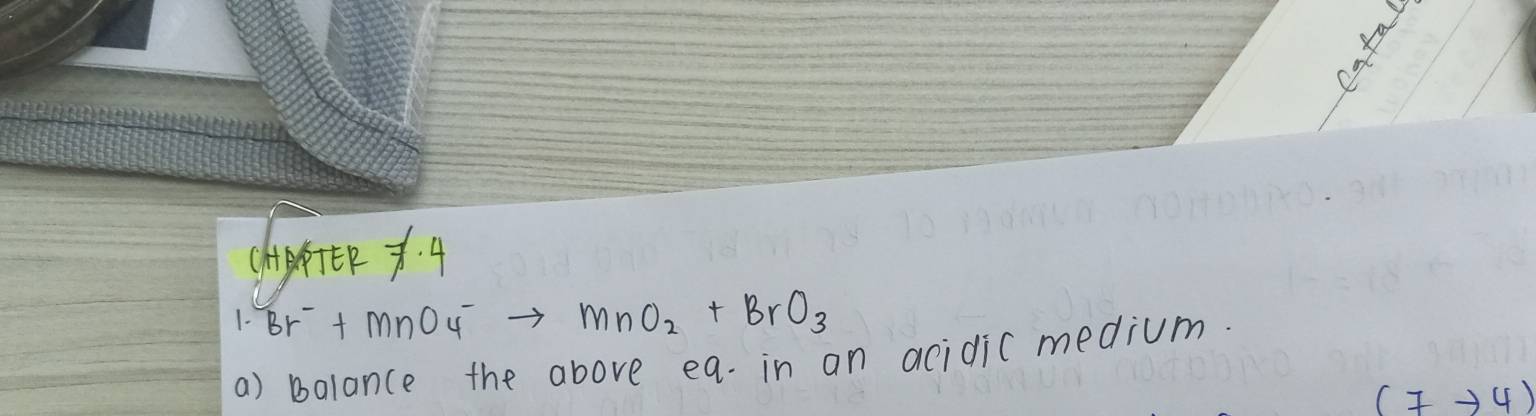 Catal
CHAPTER 7.4
1. Br⁻ + MnO4⁻ → MnO2 + BrO3
a) Balance the above eq. in an acidic medium.
(7 → 4)